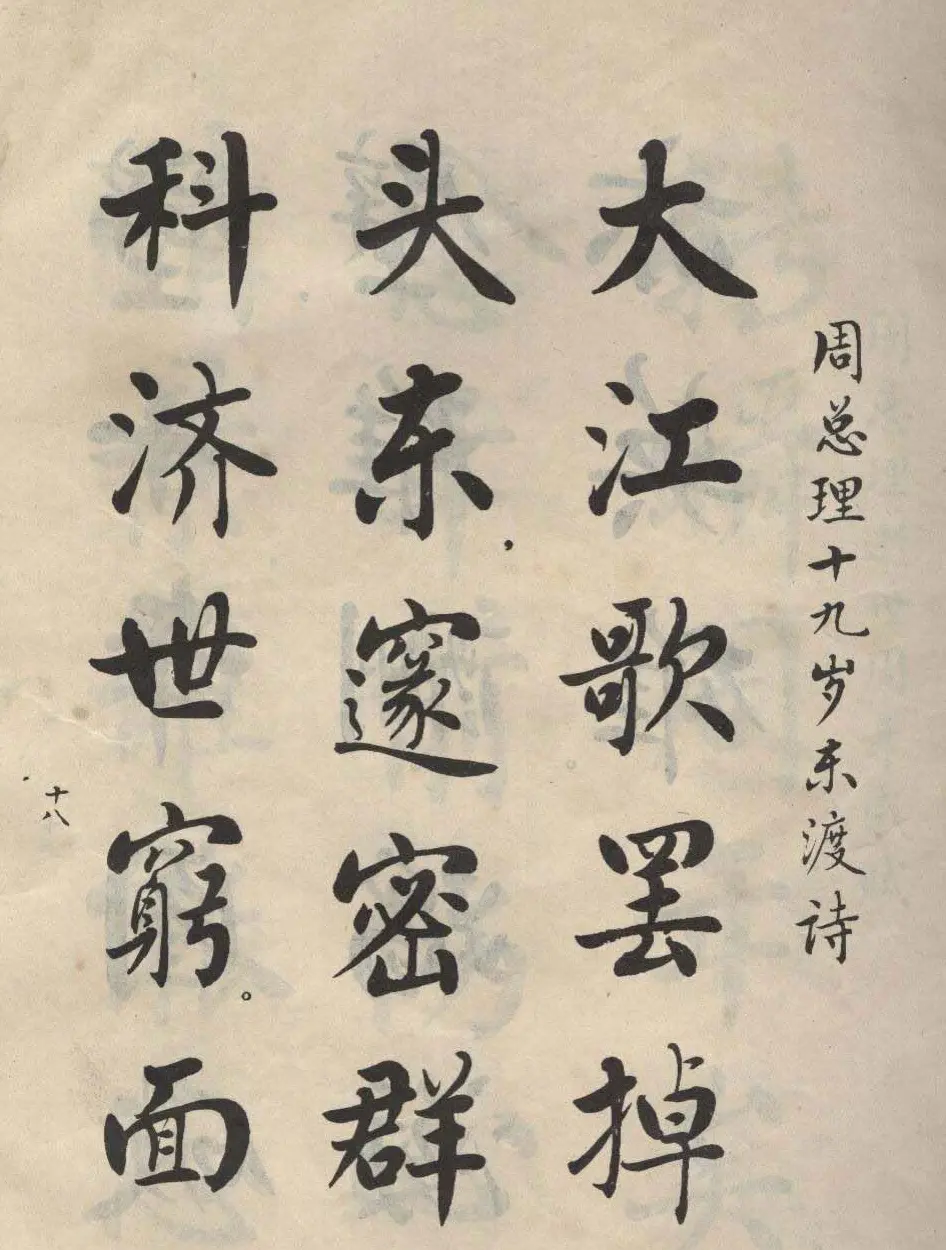 周总理十九岁东渡诗
大江歌罢掉
头东，邃密群
科济世穷。面
十八